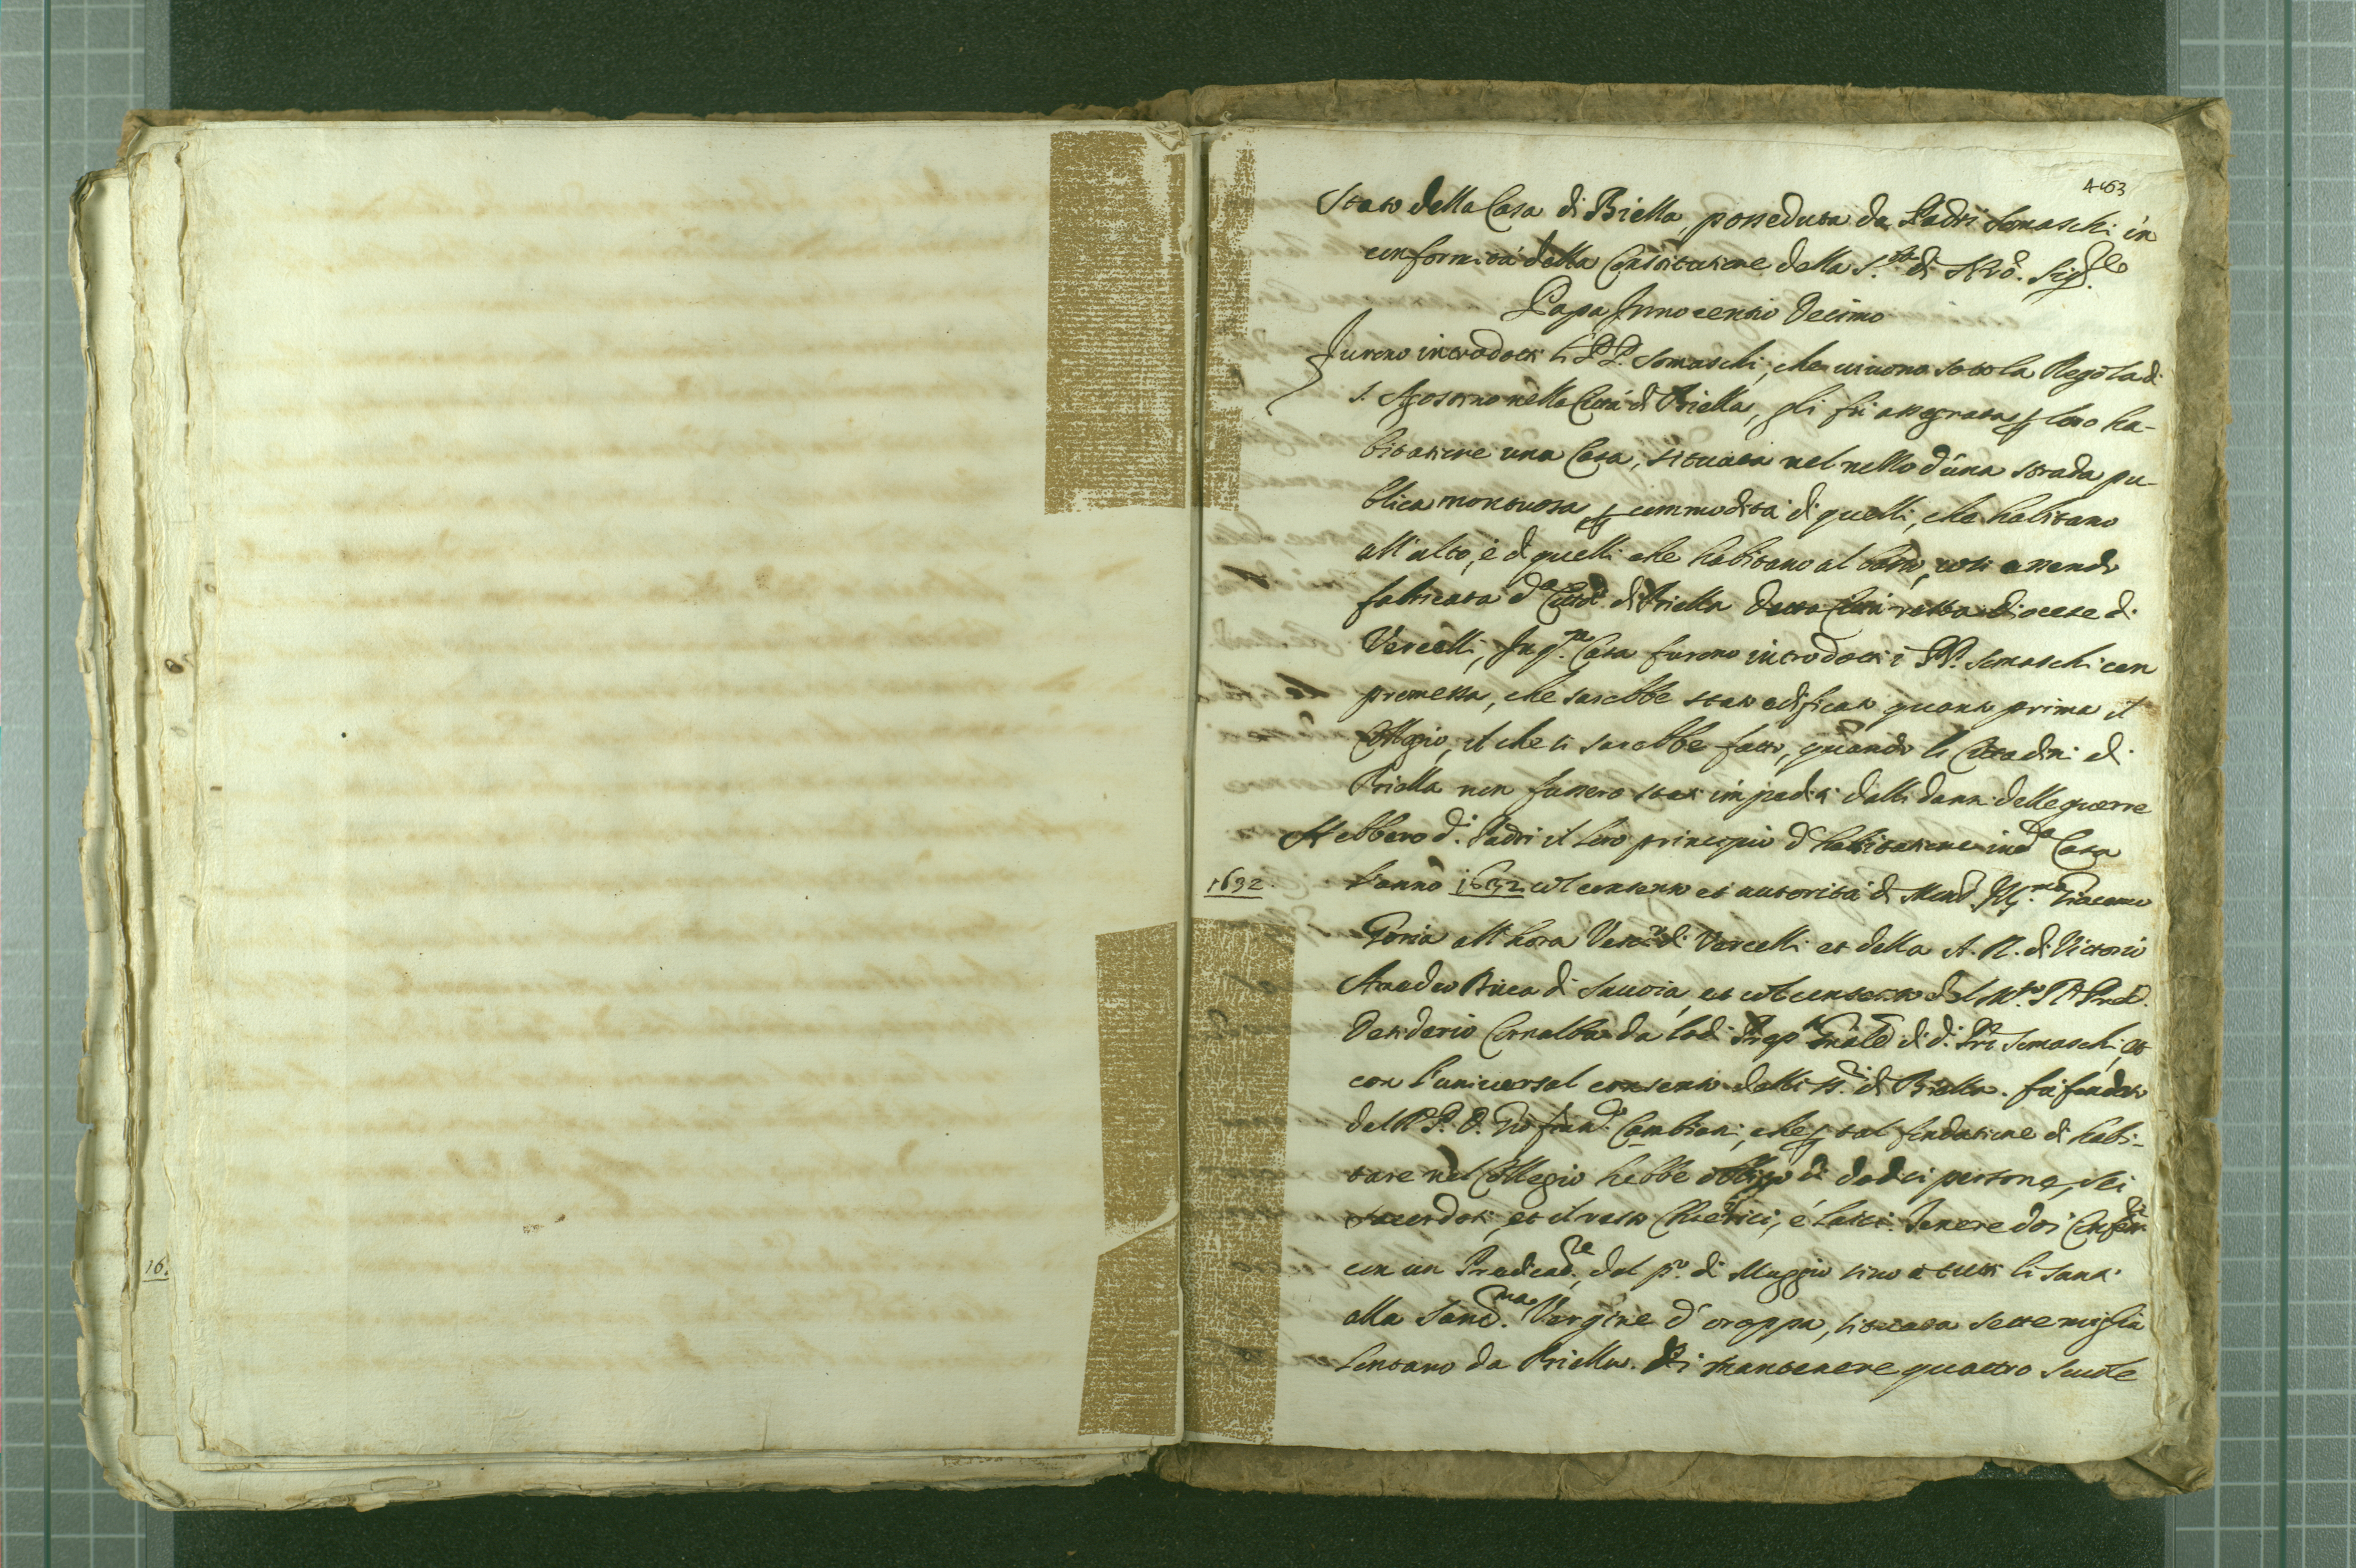 A 63
Stato della Casa di Biella, posseduta da Padri Somaschi in
conformità della Constitutione della S.tà di Nrõ. Sig.re
Papa Innocentio Decimo
Furono introdotti li PP. Somaschi, che vivono sotto la Regola di
S. Agostino nella Città di Biella, gli fù assegnata p loro ha-
bitatione una Casa, situata nel mezzo d'una strada pu-
blica montuosa p commodità di quelli, che habitano
all'alto, è di quelli che habitano al basso, così essendo
fabricata d.a Città di Biella detta Città sotto Diocese di
Vercelli, In q.ta Casa furono introdotti i PP. Somaschi con
promessa, che sarebbe stato edificato quanto prima il
Collegio, il che si sarebbe fatto, quando li Cittadini di
Biella non fussero stati impediti dalli danni delle guerre
Hebbero d.i Padri il loro principio d'habitatione in d.a Casa
1632
l'anno 1632 col consenso et autorità di Mons.r Ill.mo Giacomo
Goria all'hora Vesc.o di Vercelli et della A. R. di Vittorio
Amedeo Duca di Savoia, et col consenso del M.to R. Pred.
Desiderio Cornalba da Lodi Prep.to Gñale di d.i Pri Somaschi, et
con l'universal consenso delli SS.ri di Biella. fù fondato
dal R. P. D. Gio fran.co Cambiani, che p tal fondatione di habi-
tare nel Collegio hebbe obligo di dodici persone, sei
sacerdoti, et il resto Chierici, é laici. Tenere doi Confess.ri
con un Predicat.re, dal p.o di Maggio sino a tutti li santi
alla Sant.ma Vergine d'oroppa, situata sette miglia
lontano da Biella. Di mantenere quattro scuole
16.